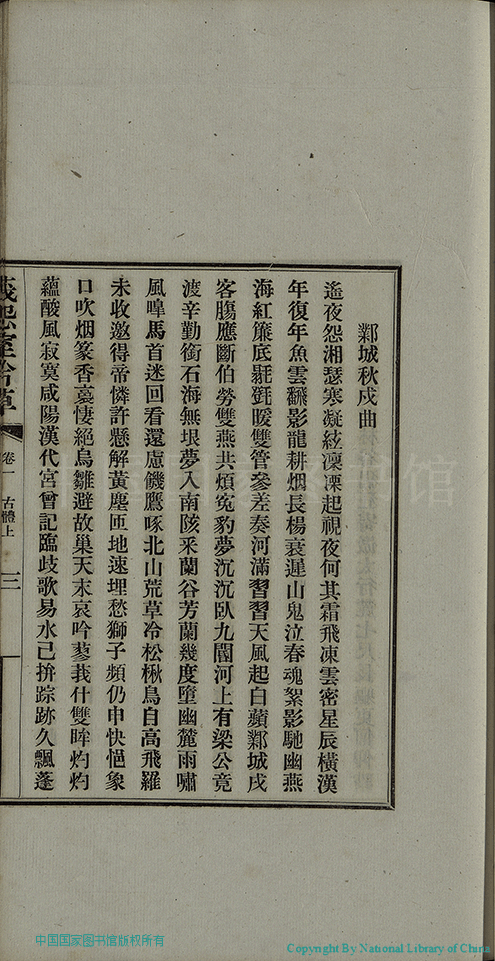 鄴城秋戍曲
遙夜怨湘瑟寒凝絃凜凜起視夜何其霜飛凍雲密星辰橫漢
年復年魚雲飜影龍耕烟長楊衰遲山鬼泣春魂絮影馳幽燕
海紅簾底毾㲪暖雙管參差奏河滿習習天風起白蘋鄴城戍
客腸應斷伯勞雙燕共煩冤豹夢沉沉臥九閽河上有梁公竟
渡辛勤銜石海無垠夢入南陔釆蘭谷芳蘭幾度墮幽麓雨嘯
風嘷馬首迷回看還慮饑鷹啄北山荒草冷松楸鳥自高飛羅
未收邀得帝憐許懸解黃塵匝地速埋愁獅子頻仍申快悒象
口吹烟篆香裊悽絕烏雛避故巢天末哀吟蓼莪什雙眸灼灼
蘊酸風寂寞咸陽漢代宮曾記臨歧歌易水已拚踪跡久飄蓬
卷一
古體上
三
中国国家图书馆版权所有
Copyright By National Library of China